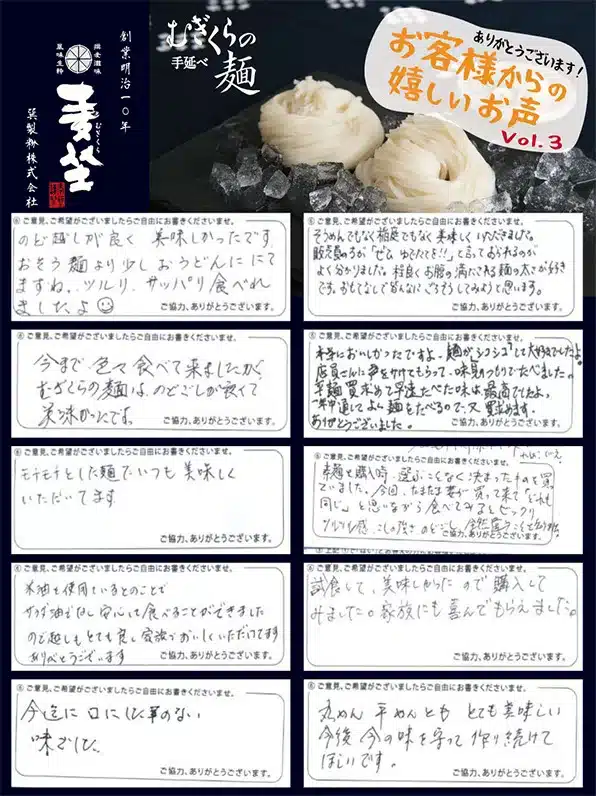 創業明治一〇年
撰麦滋味
風味生粋
むぎくら
麦坐
巽製粉株式会社
むぎくらの
手延べ 麺
ありがとうございます!
お客様からの
嬉しいお声
Vol.3
ご意見、ご希望がございましたらご自由にお書きくださいませ。
のど越しが良く 美味しかったです
おそう麺より少しおうどんににて
ますね、ツルリ、サッパリ食べれ
ましたよ
ご協力、ありがとうございます。
ご意見、ご希望がございましたらご自由にお書きくださいませ。
そうめんでもなく稲庭でもなく美味しくいただきました。
販売員の方が「ぜひ ゆでたてを!!」と言っておられるのが
よく分かりました。程良くお腹の満たされる麺の太さが好き
です。おもてなしで皆んなにごちそうしてみようと思います。
ご協力、ありがとうございます。
ご意見、ご希望がございましたらご自由にお書きくださいませ。
今まで色々食べて来ましたが、
むぎくらの麺は、のどごしが良くて
美味かったです。
ご協力、ありがとうございます。
ご意見、ご希望がございましたらご自由にお書きくださいませ。
本当においしかったですよ。麺がシコシコして大好きでしたよ。
店員さんに声をかけてもらって、味見のつもりでたべました。
平麺買求めて早速たべた味は最高でしたよ。
一年中通してよく麺をたべるので、又買求めます。
ありがとうございました。
ご協力、ありがとうございます。
ご意見、ご希望がございましたらご自由にお書きくださいませ。
モチモチとした麺でいつも美味しく
いただいてます
ご協力、ありがとうございます。
ご意見、ご希望がございましたらご自由にお書きくださいませ。
素麺を購入時、選ぶことなく決まったものを買っ
ていました。今回、たまたま妻が買って来て「どれも
同じ」と思いながら食べてみるとビックリ
ツルツル感、こしの強さ のどごし、全然違うことを
ご協力、ありがとうございます。
ご意見、ご希望がございましたらご自由にお書きくださいませ。
米油を使用しているとのことで
サラダ油でなし安心して食べることができました
のど越しもとても良く家族でおいしくいただいてます
ありがとうございます
ご協力、ありがとうございます。
ご意見、ご希望がございましたらご自由にお書きくださいませ。
試食して、美味しかったので購入して
みました。家族にも喜んでもらえました。
ご協力、ありがとうございます。
ご意見、ご希望がございましたらご自由にお書きくださいませ。
今迄に口にした事のない
味でした。
ご協力、ありがとうございます。
ご意見、ご希望がございましたらご自由にお書きくださいませ。
丸めん 平めんとも とても美味しい
今後 今の味を守って作り続けて
ほしいです。
ご協力、ありがとうございます。